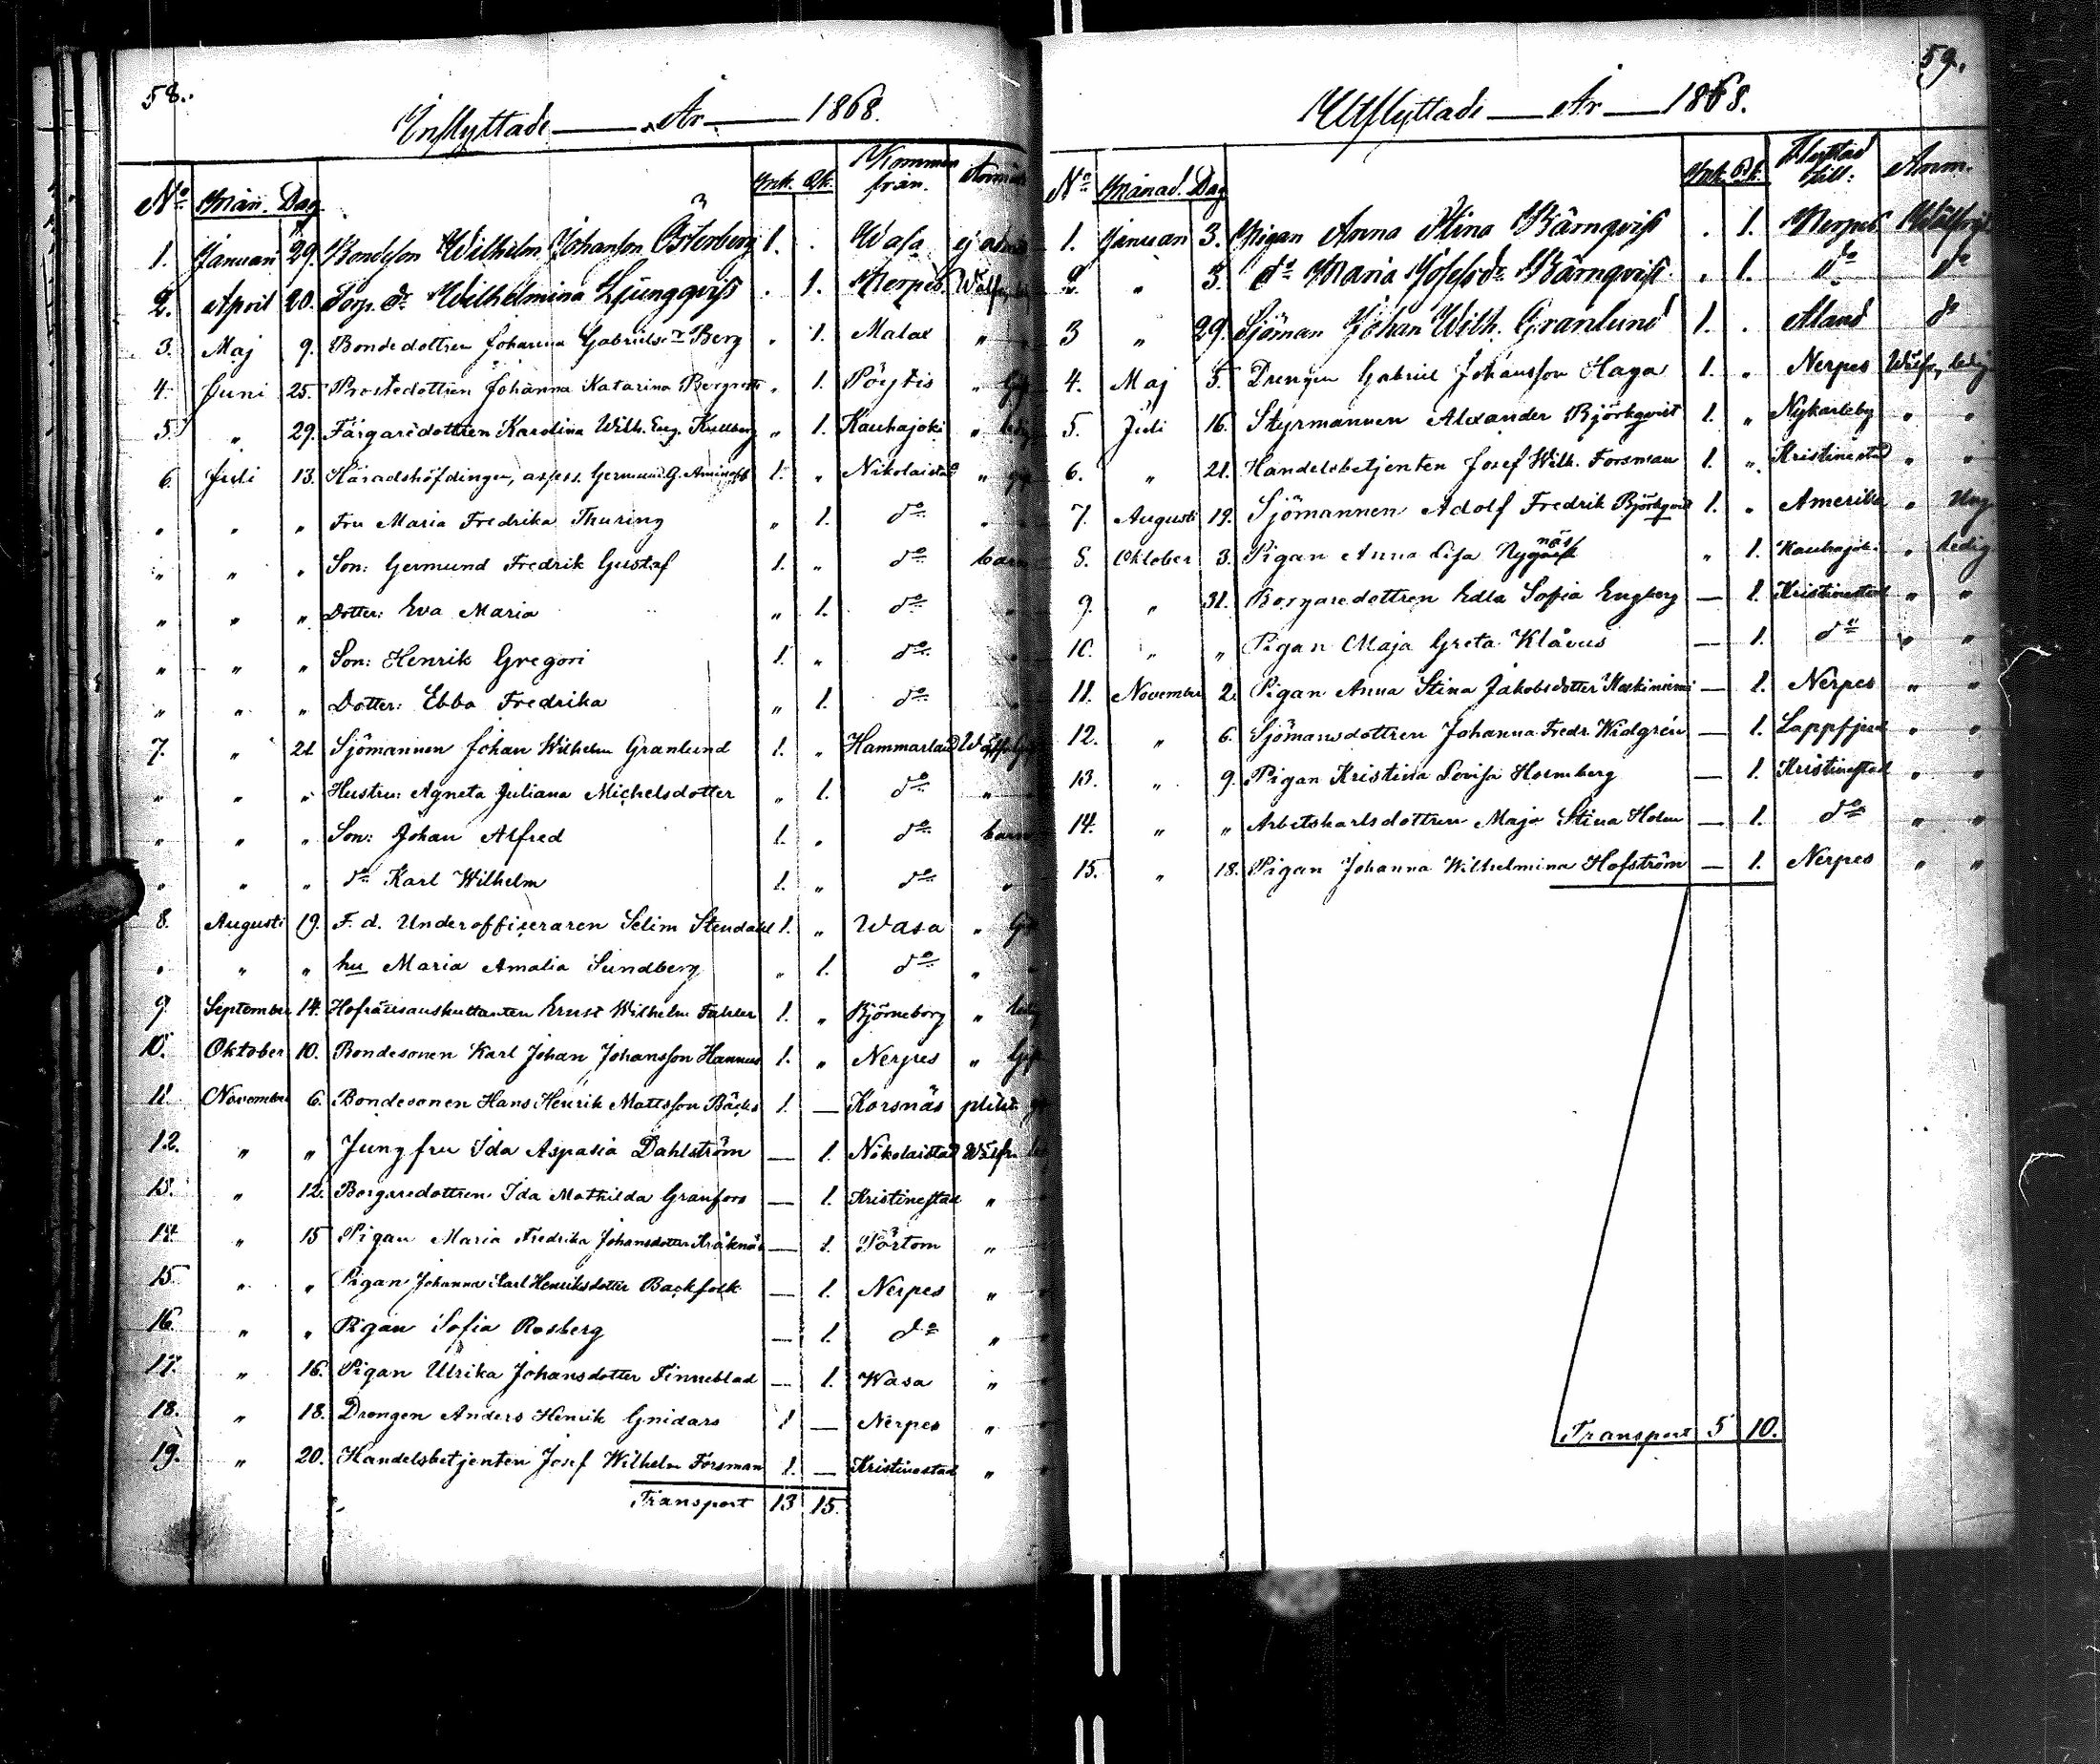 58.
Inflyttade — År — 1868.
No Mån. Dag Mk. Qk. Kommen från.
1. Januari 29. Bondeson Wilhelm Johanson Österberg 1. . Wasa ej
2. April 20. Torp. dr Wilhelmina Ljungqvist . 1. Nerpes
3. Maj 9. Bondedottren Johanna Gabrielsdr Berg „ 1. Malax „
4. Juni 25. Prostedottren Johanna Katarina „ 1. Pöytis „
5. „ 29. Färgaredottren Karolina Wilh. Eug. „ 1. Kauhajoki „ ledig
6. Juli 13. Häradshöfdingen, assess. Germund G. Aminoff 1. „ Nikolaistad „
„ „ „ Fru Maria Fredrika Thuring „ 1. do „
„ „ „ Son: Germund Fredrik Gustaf 1. „ do barn
„ „ „ Dotter: Eva Maria „ 1. do „
„ „ „ Son: Henrik Gregori 1. „ do
„ „ „ Dotter: Ebba Fredrika „ 1. do
7. „ 21 Sjömannen Johan Wilhelm Granlund 1. „ Hammarland
„ „ „ Hustru: Agneta Juliana Michelsdotter „ 1. do „
„ „ „ Son: Johan Alfred 1. „ do barn
„ „ „ do Karl Wilhelm 1. „ do „
8. Augusti 19. F. d. Underofficeraren Selim Stendahl 1. „ Wasa „
„ „ „ hu Maria Amalia Sundberg „ 1. do „
9. September 14. Hofrättsauskultanten Ernst Wilhelm 1. „ Björneborg „ ledig
10. Oktober 10. Bondesonen Karl Johan Johansson Hannus 1. „ Nerpes „
11 November 6. Bondesonen Hans Henrik Mattsson Bäcks 1. — Korsnäs
12. „ „ Jungfru Ida Aspasia Dahlström — 1. Nikolaistad
13. „ 12. Borgaredottren Ida Mathilda Granfors — 1. Kristinestad „
14. „ 15 Pigan Maria Fredrika Johansdotter — 1. Pörtom „
15. „ „ Pigan Johanna Karl Henriksdotter Backfolk — 1. Nerpes „
16. „ „ Pigan Sofia Rosberg — 1. do „
17. „ 16. Pigan Ulrika Johansdotter Finneblad — 1. Wasa „
18. „ 18. Drengen Anders Henrik Gnidars 1 — Nerpes „
19. „ 20. Handelsbetjenten Josef Wilhelm Forsman 1. — Kristinestad „
Transport 13 15.
59.
Utflyttade — År — 1868.
No Månad. Dag Mk. Qk. Flyttad till: Anm.
1. Januari 3. Pigan Anna Stina Bärnqvist . 1. Nerpes
2. „ 3. do Maria Josefsdr Bärnqvist . 1. do do
3 „ 29. Sjöman Johan Wilh. Granlund 1. . Åland do
4. Maj 5. Drengen Gabriel Johansson Haga 1. „ Nerpes Wälfr. ledig
5. Juli 16. Styrmannen Alexander Björkqvist 1. „ Nykarleby „ „
6. „ 21. Handelsbetjenten Josef Wilh. Forsman 1. „ Kristinestad „ „
7. Augusti 19. Sjömannen Adolf Fredrik Björkqvist 1. „ Amerika „
8. Oktober 3. Pigan Anna Lisa Nygnäs „ 1. Kauhajoki „ ledig
9. „ 31. Borgaredottren Edla Sofia Engberg — 1. Kristinestad „ „
10. „ „ Pigan Maja Greta Klåvus — 1. do „ „
11. November 2. Pigan Anna Stina Jakobsdotter — 1. Nerpes „ „
12. „ 6. Sjömansdottren Johanna Fredr. Widgrén — 1. Lappfjerd „ „
13. „ 9. Pigan Kristina Lovisa Holmberg — 1. Kristinestad „ „
14. „ „ Arbetskarlsdottren Maja Stina Holm — 1. do „ „
15. „ 18. Pigan Johanna Wilhelmina Hofström — 1. Nerpes „ „
Transport 5 10.